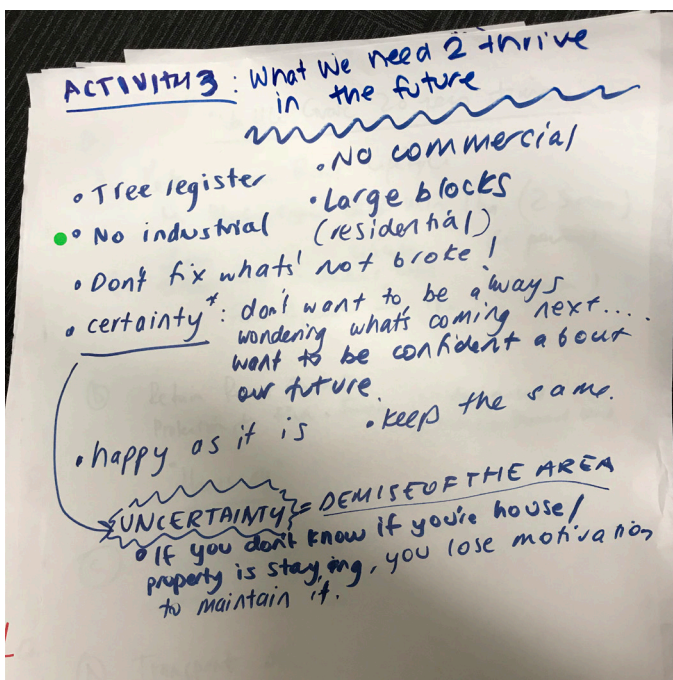 ACTIVITY 3 : What We need 2 thrive
in the future
• Tree register
• No commercial
• No industrial
• Large blocks
(residential)
• Don't fix whats' not broke!
• certainty* : don't want to be always
wondering what's coming next....
want to be confident about
our future.
• happy as it is
• keep the same.
UNCERTAINTY = DEMISE OF THE AREA
• If you don't know if you're house/
property is staying, you lose motivation
to maintain it.